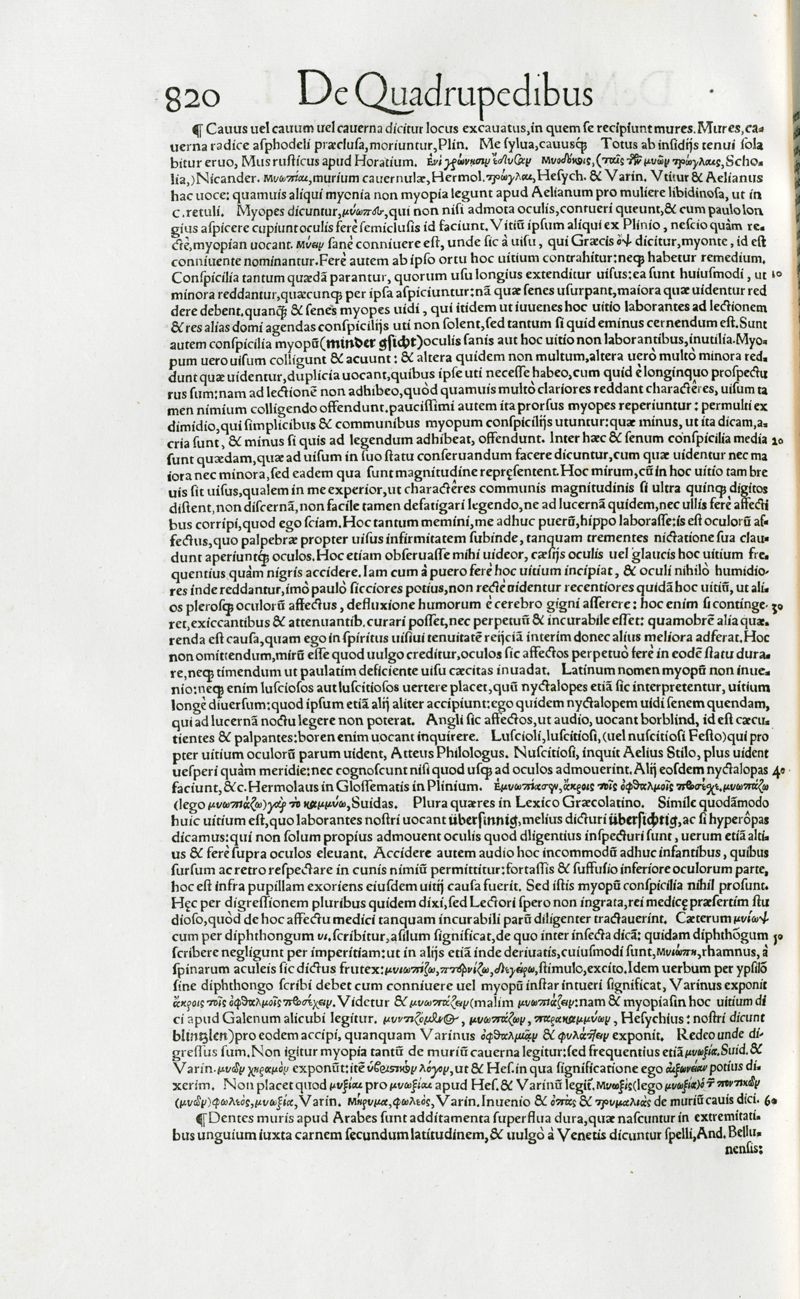 820 De Quadrupedibus
¶ Cauus uel cauum uel cauerna dicitur locus excauatus, in quem se recipiunt mures. Mures, ca-
uerna radice asphodeli præclusa, moriuntur, Plin. Me sylua, cauusq́ Totus ab insidijs tenui sola
bitur eruo, Mus rusticus apud Horatium. Μυοδόκοις, (ταῖς τῶν μυῶν τρώγλαις, Scho-
lia,) Nicander. Μυωπίαι, murium cauernulæ, Hermol. τρώγλαι, Hesych. & Varin. Vtitur & Aelianus
hac uoce: quamuis aliqui myonia non myopia legunt apud Aelianum pro muliere libidinosa, ut in
c. retuli. Myopes dicuntur, qui non nisi admota oculis, contueri queunt, & cum paulo lon
gius aspicere cupiunt oculis ferè semiclusis id faciunt. Vitiũ ipsum aliqui ex Plinio, nescio quàm re-
ctè, myopian uocant. Μύειν sanè conniuere est, unde sic à uisu, qui Græcis ὀψ dicitur, myonte, id est
conniuente nominantur. Ferè autem ab ipso ortu hoc uitium contrahitur: neq́ habetur remedium.
Conspicilia tantum quædã parantur, quorum usu longius extenditur uisus: ea sunt huiusmodi, ut 10
minora reddantur, quæcunq́ per ipsa aspiciuntur: nã quæ senes usurpant, maiora quæ uidentur red
dere debent. quanq̃ & senes myopes uidi, qui itidem ut iuuenes hoc uitio laborantes ad lectionem
& res alias domi agendas conspicilijs uti non solent, sed tantum si quid eminus cernendum est. Sunt
autem conspicilia myopũ (minder gsicht) oculis sanis aut hoc uitio non laborantibus, inutilia. Myo-
pum uero uisum colligunt & acuunt: & altera quidem non multum, altera uerò multò minora red-
dunt quæ uidentur, duplicia uocant, quibus ipse uti necesse habeo, cum quid è longinquo prospectu
rus sum: nam ad lectionẽ non adhibeo, quòd quamuis multò clariores reddant charactêres, uisum ta
men nimium colligendo offendunt. paucissimi autem ita prorsus myopes reperiuntur: permulti ex
dimidio, qui simplicibus & communibus myopum conspicilijs utuntur: quæ minus, ut ita dicam, a-
cria sunt, & minus si quis ad legendum adhibeat, offendunt. Inter hæc & senum conspicilia media 20
sunt quædam, quæ ad uisum in suo statu conseruandum facere dicuntur, cum quæ uidentur nec ma
iora nec minora, sed eadem qua sunt magnitudine repręsentent. Hoc mirum, cũ in hoc uitio tam bre
uis sit uisus, qualem in me experior, ut charactêres communis magnitudinis si ultra quinq́ digitos
distent, non discernã, non facile tamen defatigari legendo, ne ad lucernã quidem, nec ullis ferè affecti
bus corripi, quod ego sciam. Hoc tantum memini, me adhuc puerũ, hippo laborasse: is est oculorũ af-
fectus, quo palpebræ propter uisus infirmitatem subinde, tanquam trementes nictatione sua clau-
dunt aperiuntq́ oculos. Hoc etiam obseruasse mihi uideor, cæsijs oculis uel glaucis hoc uitium fre-
quentius quàm nigris accidere. Iam cum à puero ferè hoc uitium incipiat, & oculi nihilò humidio-
res inde reddantur, imò paulò sicciores potius, non rectè uidentur recentiores quidã hoc uitiũ, ut ali-
os plerosq́ oculorũ affectus, defluxione humorum è cerebro gigni asserere: hoc enim si continge- 30
ret, exiccantibus & attenuantib. curari posset, nec perpetuũ & incurabile esset: quamobrẽ alia quæ-
renda est causa, quam ego in spiritus uisiui tenuitatẽ reijciã interim donec alius meliora adferat. Hoc
non omittendum, mirũ esse quod uulgo creditur, oculos sic affectos perpetuò ferè in eodẽ statu dura-
re, neq́ timendum ut paulatim deficiente uisu cæcitas inuadat. Latinum nomen myopũ non inue-
nio: neq́ enim lusciosos aut luscitiosos uertere placet, quũ nyctalopes etiã sic interpretentur, uitium
longè diuersum: quod ipsum etiã alij aliter accipiunt: ego quidem nyctalopem uidi senem quendam,
qui ad lucernã noctu legere non poterat. Angli sic affectos, ut audio, uocant borblind, id est cæcu-
tientes & palpantes: boren enim uocant inquirere. Luscioli, luscitiosi, (uel nuscitiosi Festo) qui pro
pter uitium oculorũ parum uident, Atteus Philologus. Nuscitiosi, inquit Aelius Stilo, plus uident
uesperi quàm meridie: nec cognoscunt nisi quod usq́ ad oculos admouerint. Alij eosdem nyctalopas 40
faciunt, &c. Hermolaus in Glossematis in Plinium. Ἐμυωπίασεν, ἄκροις τοῖς ὀφθαλμοῖς προσέσχε. μυωπάζω
(lego μυωπιάζω) γὰρ τὸ καμμύω, Suidas. Plura quæres in Lexico Græcolatino. Simile quodãmodo
huic uitium est, quo laborantes nostri uocant übersinnig, melius dicturi übersichtig, ac si hyperôpas
dicamus: qui non solum propius admouent oculis quod dligentius inspecturi sunt, uerum etiã alti-
us & ferè supra oculos eleuant. Accidere autem audio hoc incommodũ adhuc infantibus, quibus
sursum ac retro respectare in cunis nimiũ permittitur: fortassis & suffusio inferiore oculorum parte,
hoc est infra pupillam exoriens eiusdem uitij causa fuerit. Sed istis myopũ conspicilia nihil prosunt.
Hęc per digressionem pluribus quidem dixi, sed Lectori spero non ingrata, rei medicę præsertim stu
dioso, quòd de hoc affectu medici tanquam incurabili parũ diligenter tractauerint. Cæterum μυίωψ
cum per diphthongum υι. scribitur, asilum significat, de quo inter insecta dicã: quidam diphthõgum 50
scribere negligunt per imperitiam: ut in alijs etiã inde deriuatis, cuiusmodi sunt, rhamnus, à
spinarum aculeis sic dictus frutex: μυιωπίζω, πτερνίζω, διεγείρω, stimulo, excito. Idem uerbum per ypsilõ
sine diphthongo scribi debet cum conniuere uel myopũ instar intueri significat, Varinus exponit
ἄκροις τοῖς ὀφθαλμοῖς προσέχειν. Videtur & μυωπάζειν (malim μυωπιάζειν: nam & myopiasin hoc uitium di
ci apud Galenum alicubi legitur. μυωπάζων, παρακαμμύων, Hesychius: nostri dicunt
blintzlen) pro eodem accipi, quanquam Varinus & φυλάττειν exponit. Redeo unde di-
gressus sum. Non igitur myopia tantũ de muriũ cauerna legitur: sed frequentius etiã μυωξία. Suid. &
Varin. μυῶν χηραμὸν exponũt: itẽ ὑβριστικὸν λόγον, ut & Hes. in qua significatione ego potius di-
xerim. Non placet quod μυξίαι pro μυωξίαι apud Hes. & Varinũ legit̃. Μυωξὶς (lego μυωξία) ὁ τῶν ποντικῶν
(μυῶν) φωλεὸς, μυωξία, Varin. φωλεὸς, Varin. Inuenio & ὀπὰς & τρυμαλιὰς de muriũ cauis dici. 60
¶ Dentes muris apud Arabes sunt additamenta superflua dura, quæ nascuntur in extremitati-
bus unguium iuxta carnem secundum latitudinem, & uulgò à Venetis dicuntur spelli, And. Bellu-
nensis: